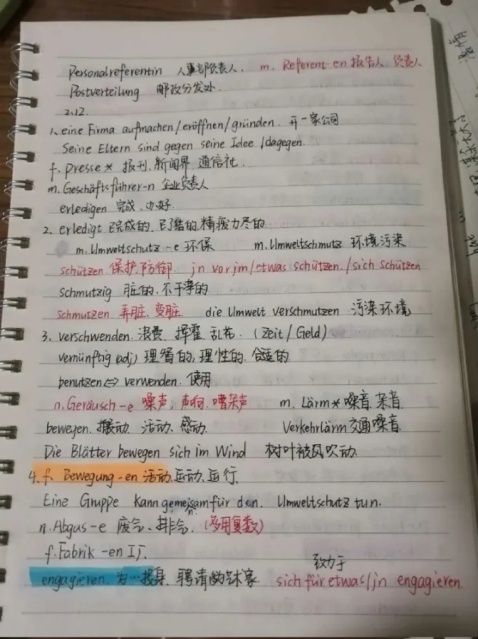 Personalreferentin 人事部负责人. m. Referent-en 报告人, 负责人
Postverteilung 邮政分发处
2.12.
1. eine Firma aufmachen/eröffnen/gründen. 开一家公司
Seine Eltern sind gegen seine Idee/dagegen.
f. presse × 报刊, 新闻界 通信社.
m. Geschäftsführer-n 企业负责人
erledigen 完成. 办好
2. Erledigt 完成的, 已了结的, 精疲力尽的
m. Umweltschutz -e 环保 m. Umweltschmutz 环境污染
schützen 保护, 防御 jn vor jm/etwas schützen/sich schützen
schmutzig 脏的. 不干净的
schmutzen 弄脏, 变脏 die Umwelt verschmutzen 污染环境
3. verschwenden 浪费 挥霍 乱花. (Zeit/Geld)
vernünftig (adj) 理智的, 理性的. 合适的
benutzen ⇔ verwenden. 使用
n. Geräusch -e 噪声, 声响, 嘈杂声 m. Lärm × 噪音, 杂音
bewegen. 搬动. 活动. 感动 Verkehrlärm 交通噪音
Die Blätter bewegen sich im Wind 树叶被风吹动.
4. f. Bewegung -en 活动, 运动, 运行
Eine Gruppe kann gemeinsam für den. Umweltschutz tun.
n. Abgus -e 废气、排气. (多用复数)
f. Fabrik -en 工厂.
致力于
engagieren. 为…投身, 聘请 sich für etwas/jn engagieren